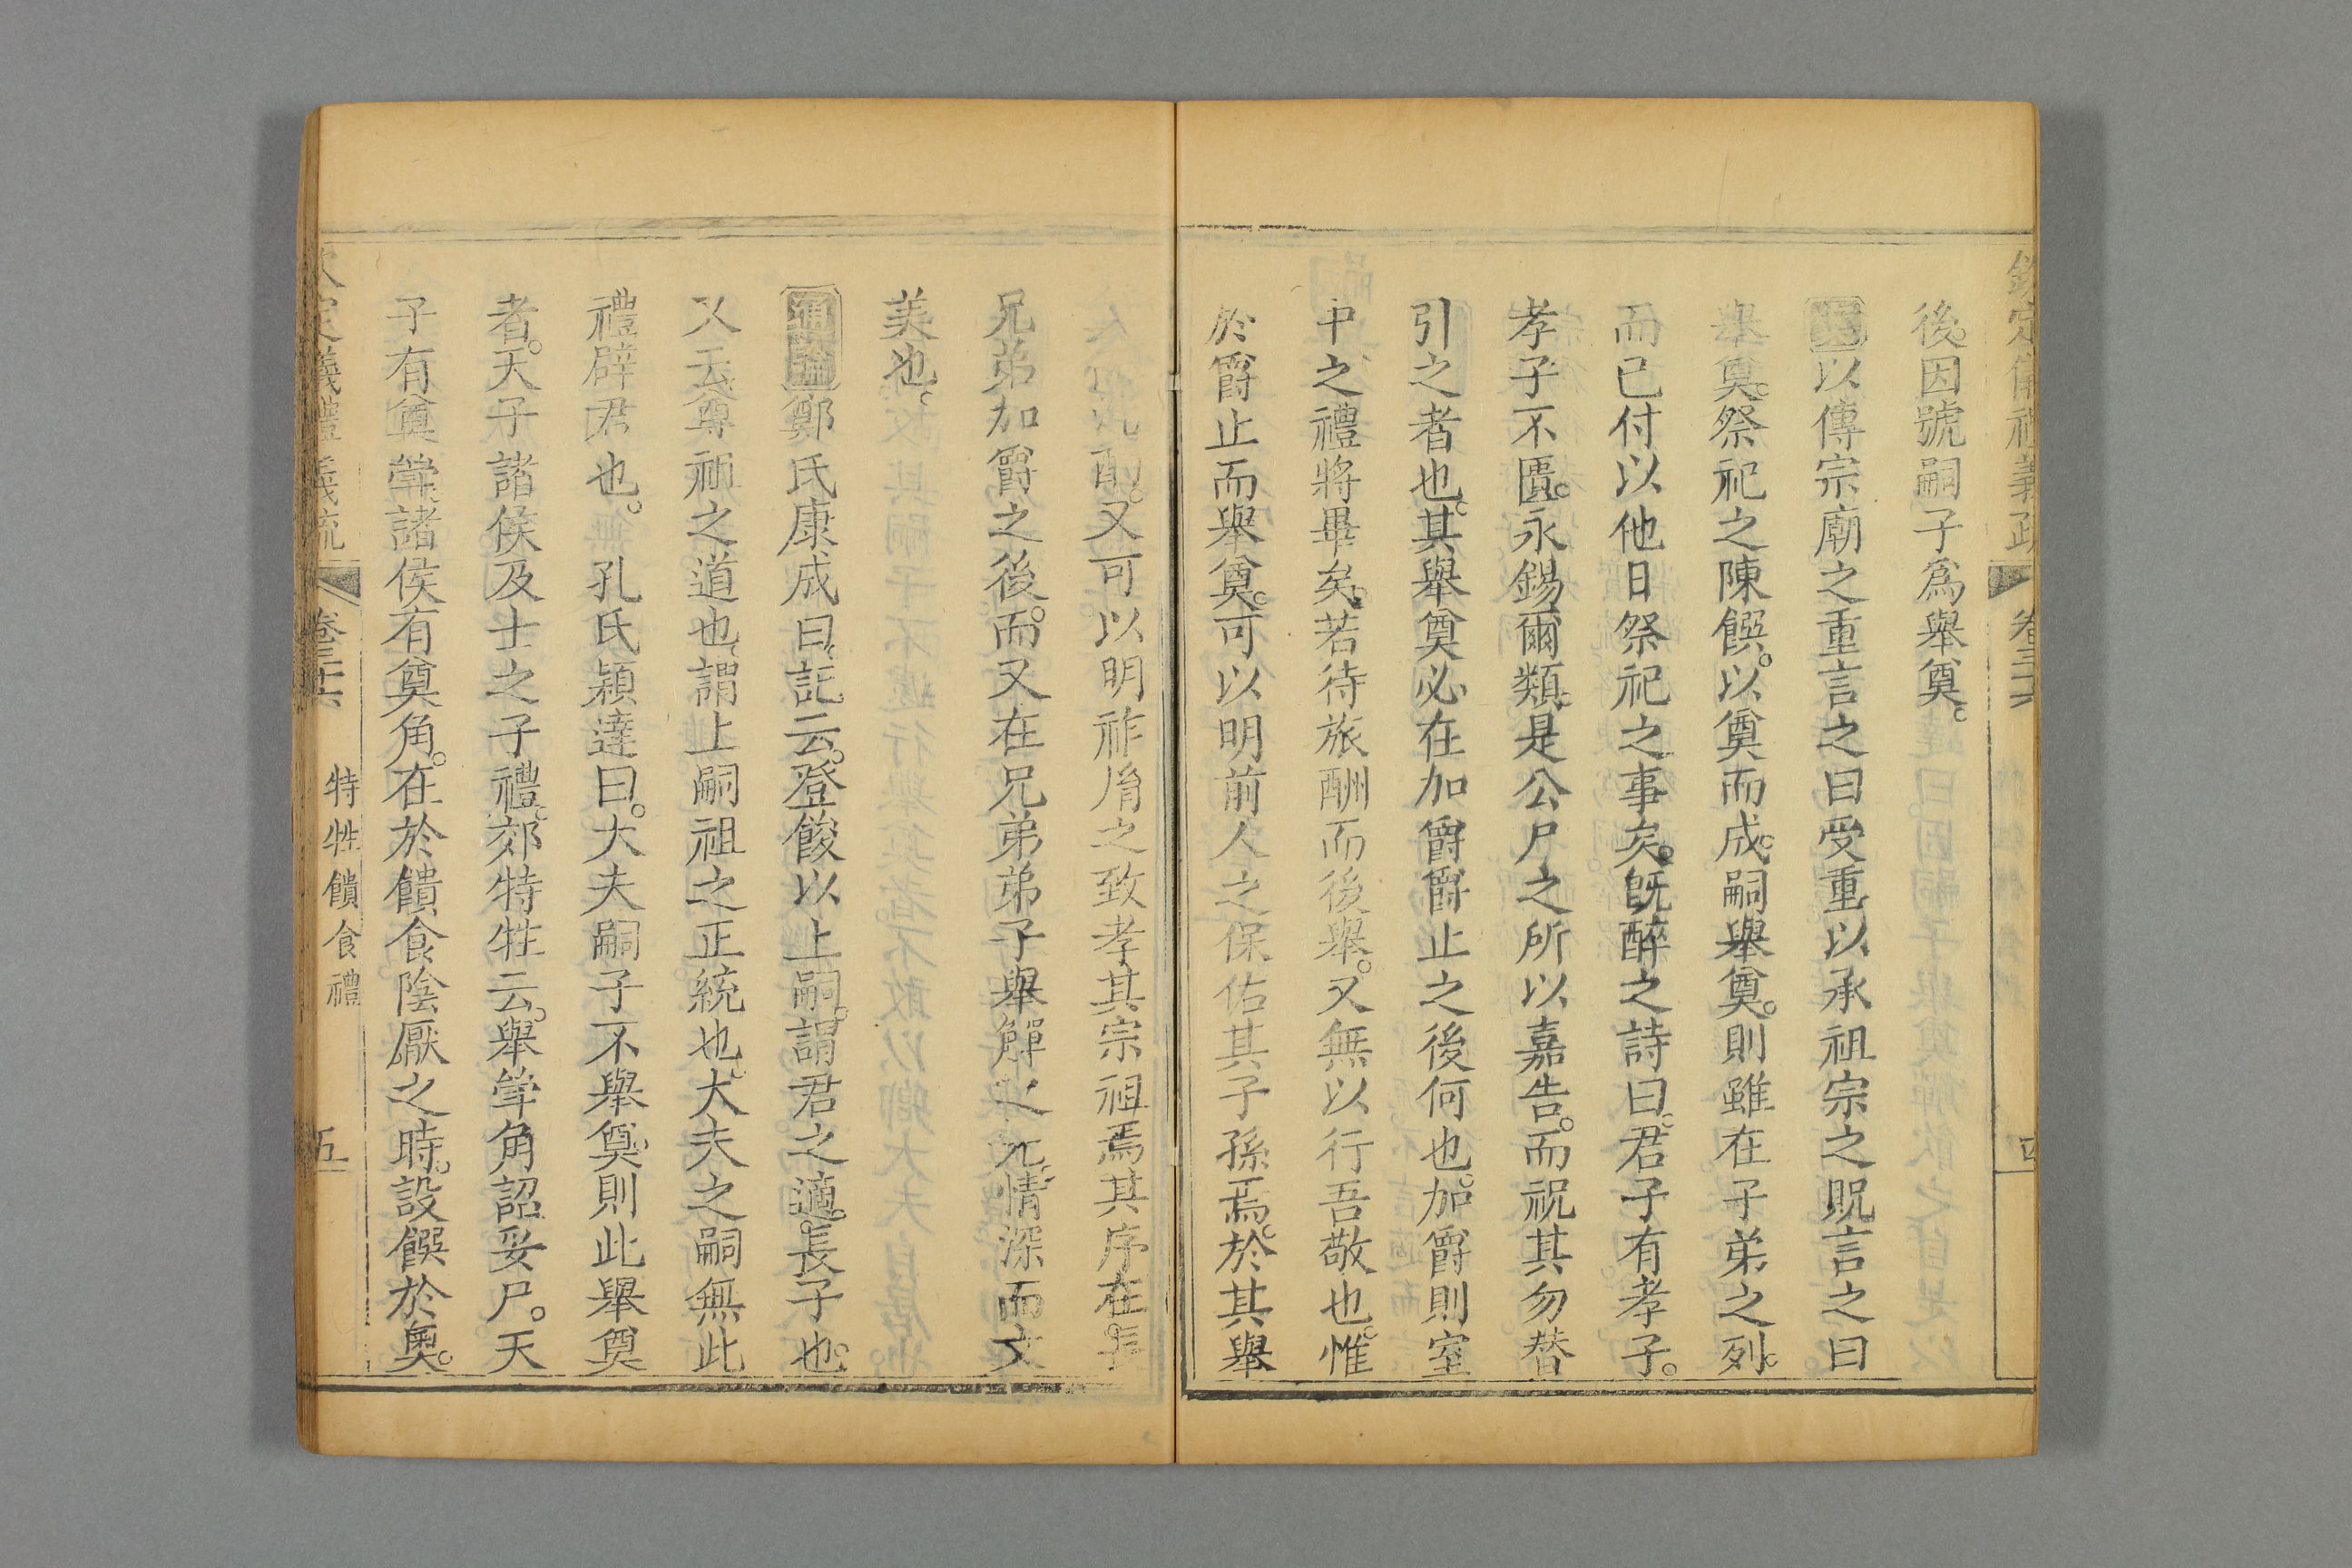 欽定儀禮義疏 卷三十六 四
後。因號嗣子爲舉奠。
案以傳宗廟之重言之曰受重以承祖宗之貺言之曰
舉奠。祭祀之陳饌。以奠而成。嗣舉奠。則雖在子弟之列。
而已付以他日祭祀之事矣。旣醉之詩曰。君子有孝子。
孝子不匱。永錫爾類。是公尸之所以嘉告。而祝其勿替
引之者也。其舉奠必在加爵爵止之後何也。加爵則室
中之禮將畢矣。若待旅酬而後舉。又無以行吾敬也。惟
於爵止而舉奠。可以明前人之保佑其子孫焉。於其舉
酌。又可以明祚胤之致孝其宗祖焉其序在長
兄弟加爵之後。而又在兄弟弟子舉觶之先。情深而文
美也。
通論鄭氏康成曰。記云。登餕以上嗣。謂君之適。長子也。
又云。尊祖之道也。謂上嗣祖之正統也。大夫之嗣無此
禮辟君也。 孔氏穎達曰。大夫嗣子不舉奠。則此舉奠
者。天子諸侯及士之子禮。郊特牲云。舉斝角詔妥尸。天
子有奠斝。諸侯有奠角。在於饋食陰厭之時。設饌於奧。
欽定儀禮義疏 卷三十六 特牲饋食禮 五